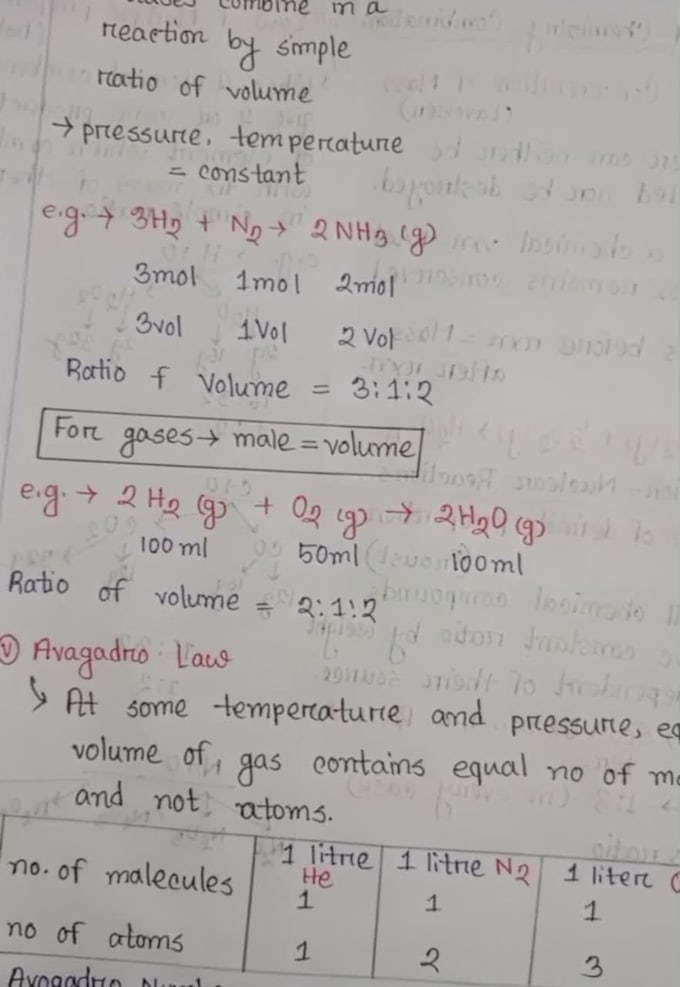 combine in a
reaction by simple
ratio of volume
→ pressure, temperature
= constant
e.g. → 3H₂ + N₂ → 2NH₃ (g)
3mol 1mol 2mol
3vol 1Vol 2 Vol
Ratio f Volume = 3:1:2
For gases → male = volume
e.g. → 2H₂ (g) + O₂ (g) → 2H₂O (g)
100 ml 50ml 100ml
Ratio of volume = 2:1:2
Avagadro Law
↳ At some temperature and pressure, eq
volume of gas contains equal no of m
and not atoms.
1 litre He 1 litre N₂ 1 liter
no. of malecules 1 1 1
no of atoms 1 2 3
Avogadro